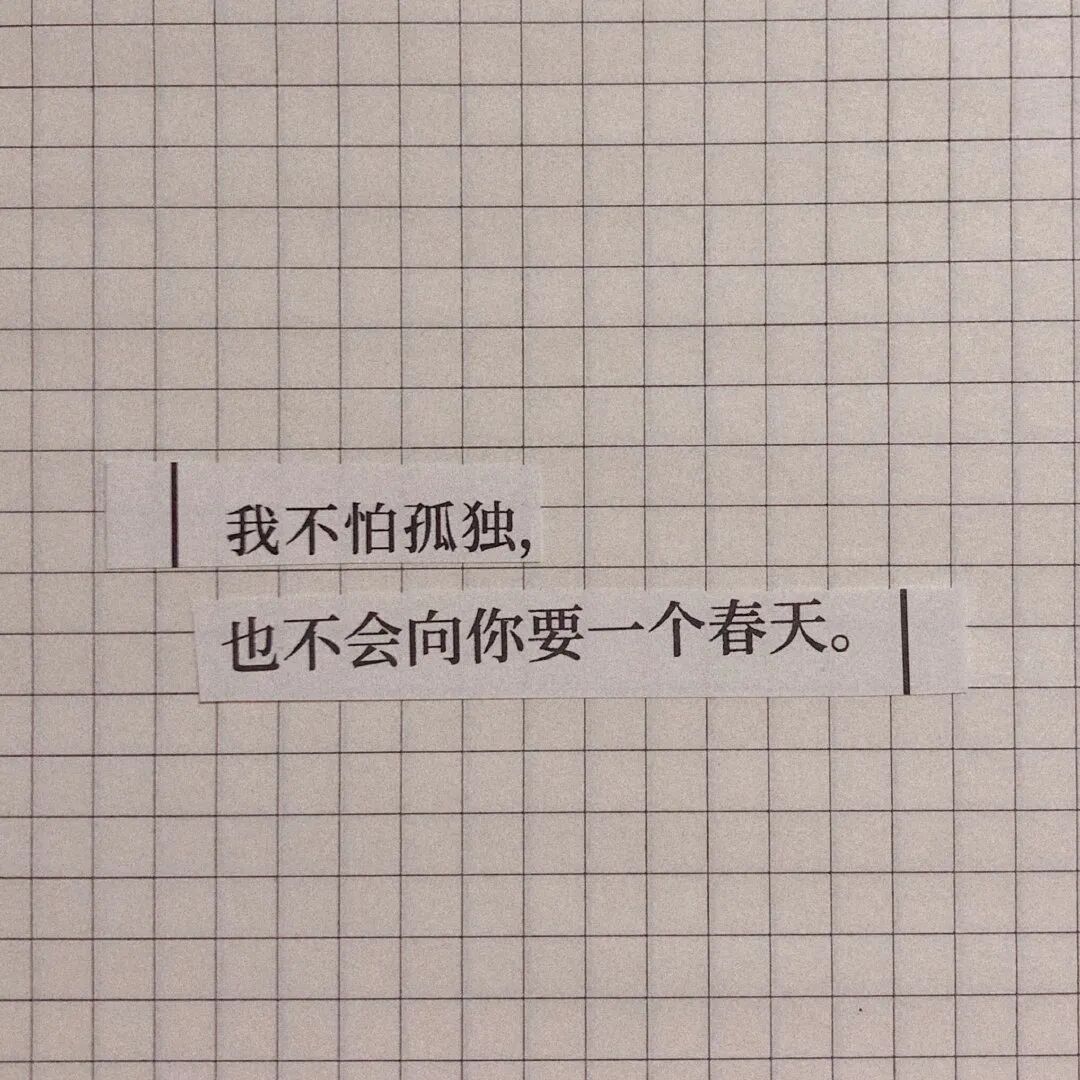 我不怕孤独,
也不会向你要一个春天。